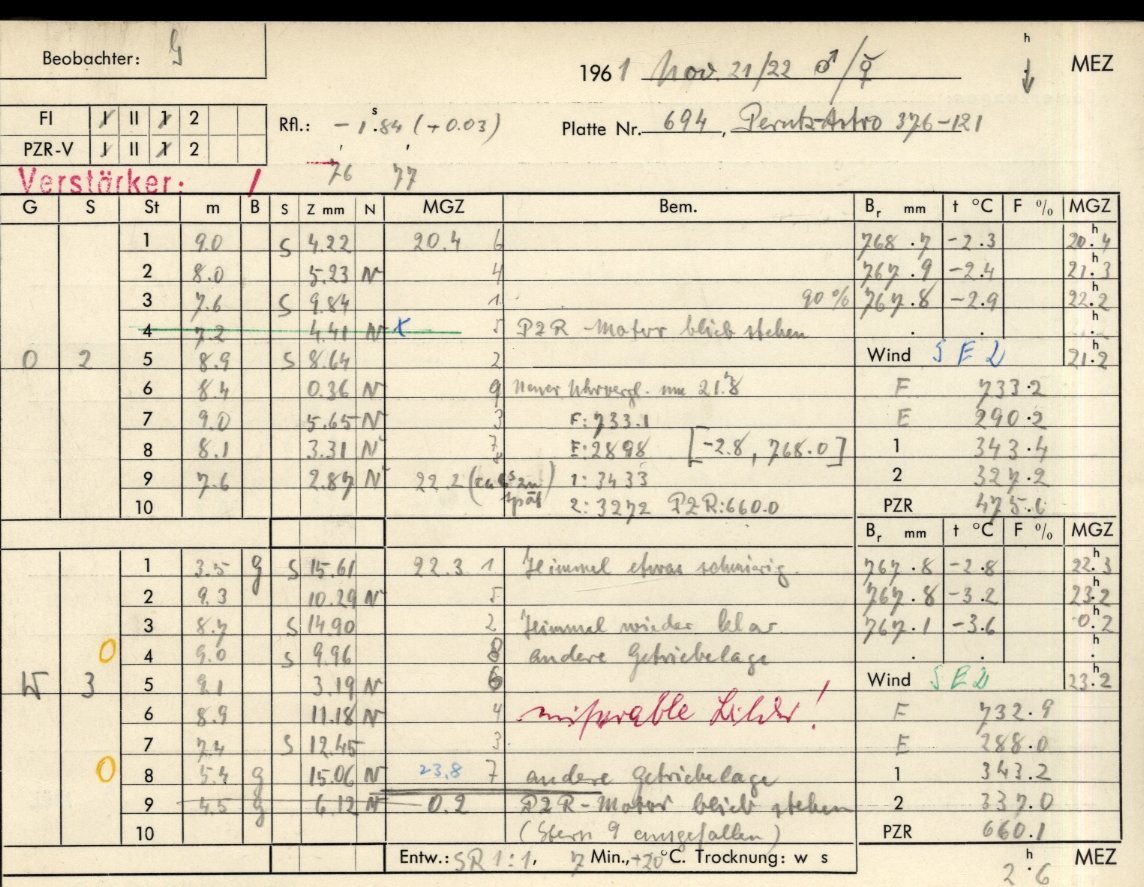 Beobachter: G
1961 Nov. 21/22 ♂/♀ h MEZ
FI I II 1 2
PZR-V I II 1 2
Rfl.: -1.ˢ84 (+0.03) Platte Nr. 694, Perutz-Astro 376-121
76 77
Verstärker: 1
G S St m B S Z mm N MGZ Bem. Bᵣ mm t °C F % MGZ
1 9.0 S 4.22 20.4 6 768.7 -2.3 20.ʰ4
2 8.0 5.23 N 4 767.9 -2.4 21.ʰ3
3 7.6 S 9.84 1 90% 767.8 -2.9 22.ʰ2
4 7.2 4.41 N x 5 PZR-Motor blieb stehen . . h
O 2 5 8.9 S 8.64 2 Wind SE 2 21.ʰ2
6 8.4 0.36 N 9 Neuer Uhrvergl. um 21.ʰ8 F 733.2
7 9.0 5.65 N 3 F: 733.1 E 290.2
8 8.1 3.31 N 7 E: 2898 [-2.8, 768.0] 1 343.4
9 7.6 2.87 N 22.2 (ca 6ˢ zu spät) 1: 3433 2 327.2
10 2: 3272 PZR: 660.0 PZR 475.1
Bᵣ mm t °C F % MGZ
1 3.5 g S 15.61 22.3 1 Himmel etwas schmierig. 767.8 -2.8 22.ʰ3
2 9.3 10.29 N 5 767.8 -3.2 23.ʰ2
3 8.7 S 14.90 2 Himmel wieder klar 767.1 -3.6 0.ʰ2
0 4 9.0 S 9.96 8 andere Getriebelage . . h
W 3 5 9.1 3.19 N 6 Wind SE 2 23.ʰ2
6 8.9 11.18 N 4 miserable Bilder! F 732.9
7 7.4 S 12.45 3 E 288.0
0 8 5.4 g 15.06 N 23.8 7 andere Getriebelage 1 343.2
9 4.5 g 6.12 N 0.2 PZR-Motor blieb stehen 2 337.0
10 (Stern 9 ausgefallen) PZR 660.1
Entw.: SR 1:1, 7 Min., +20°C. Trocknung: w s 2.ʰ6 MEZ